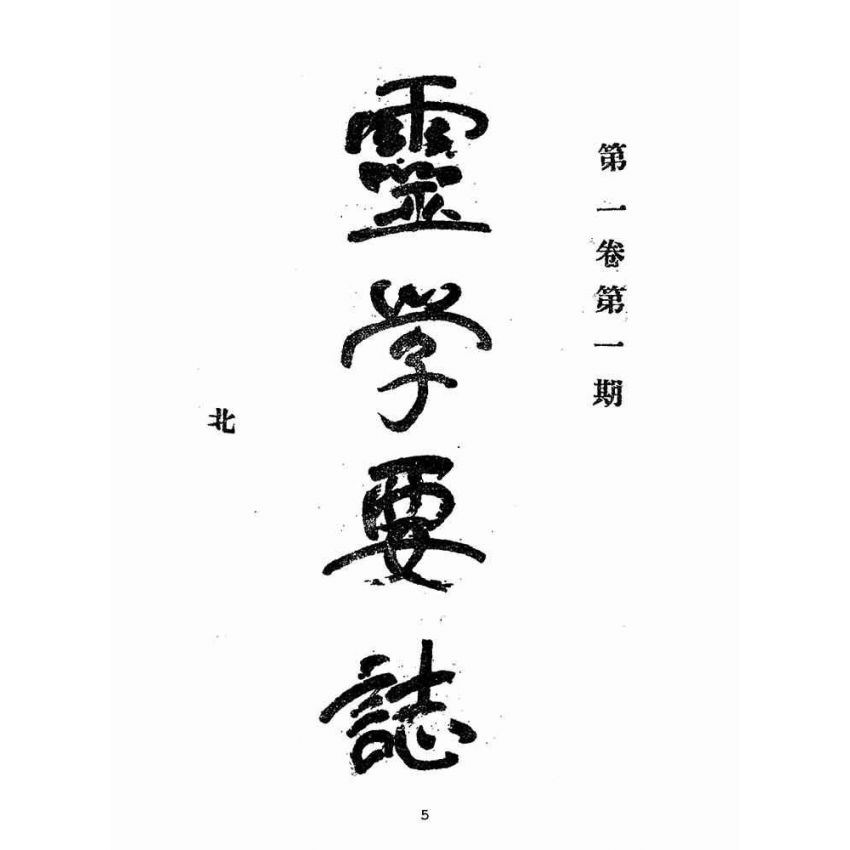 第一卷第一期
靈學要誌
北
5